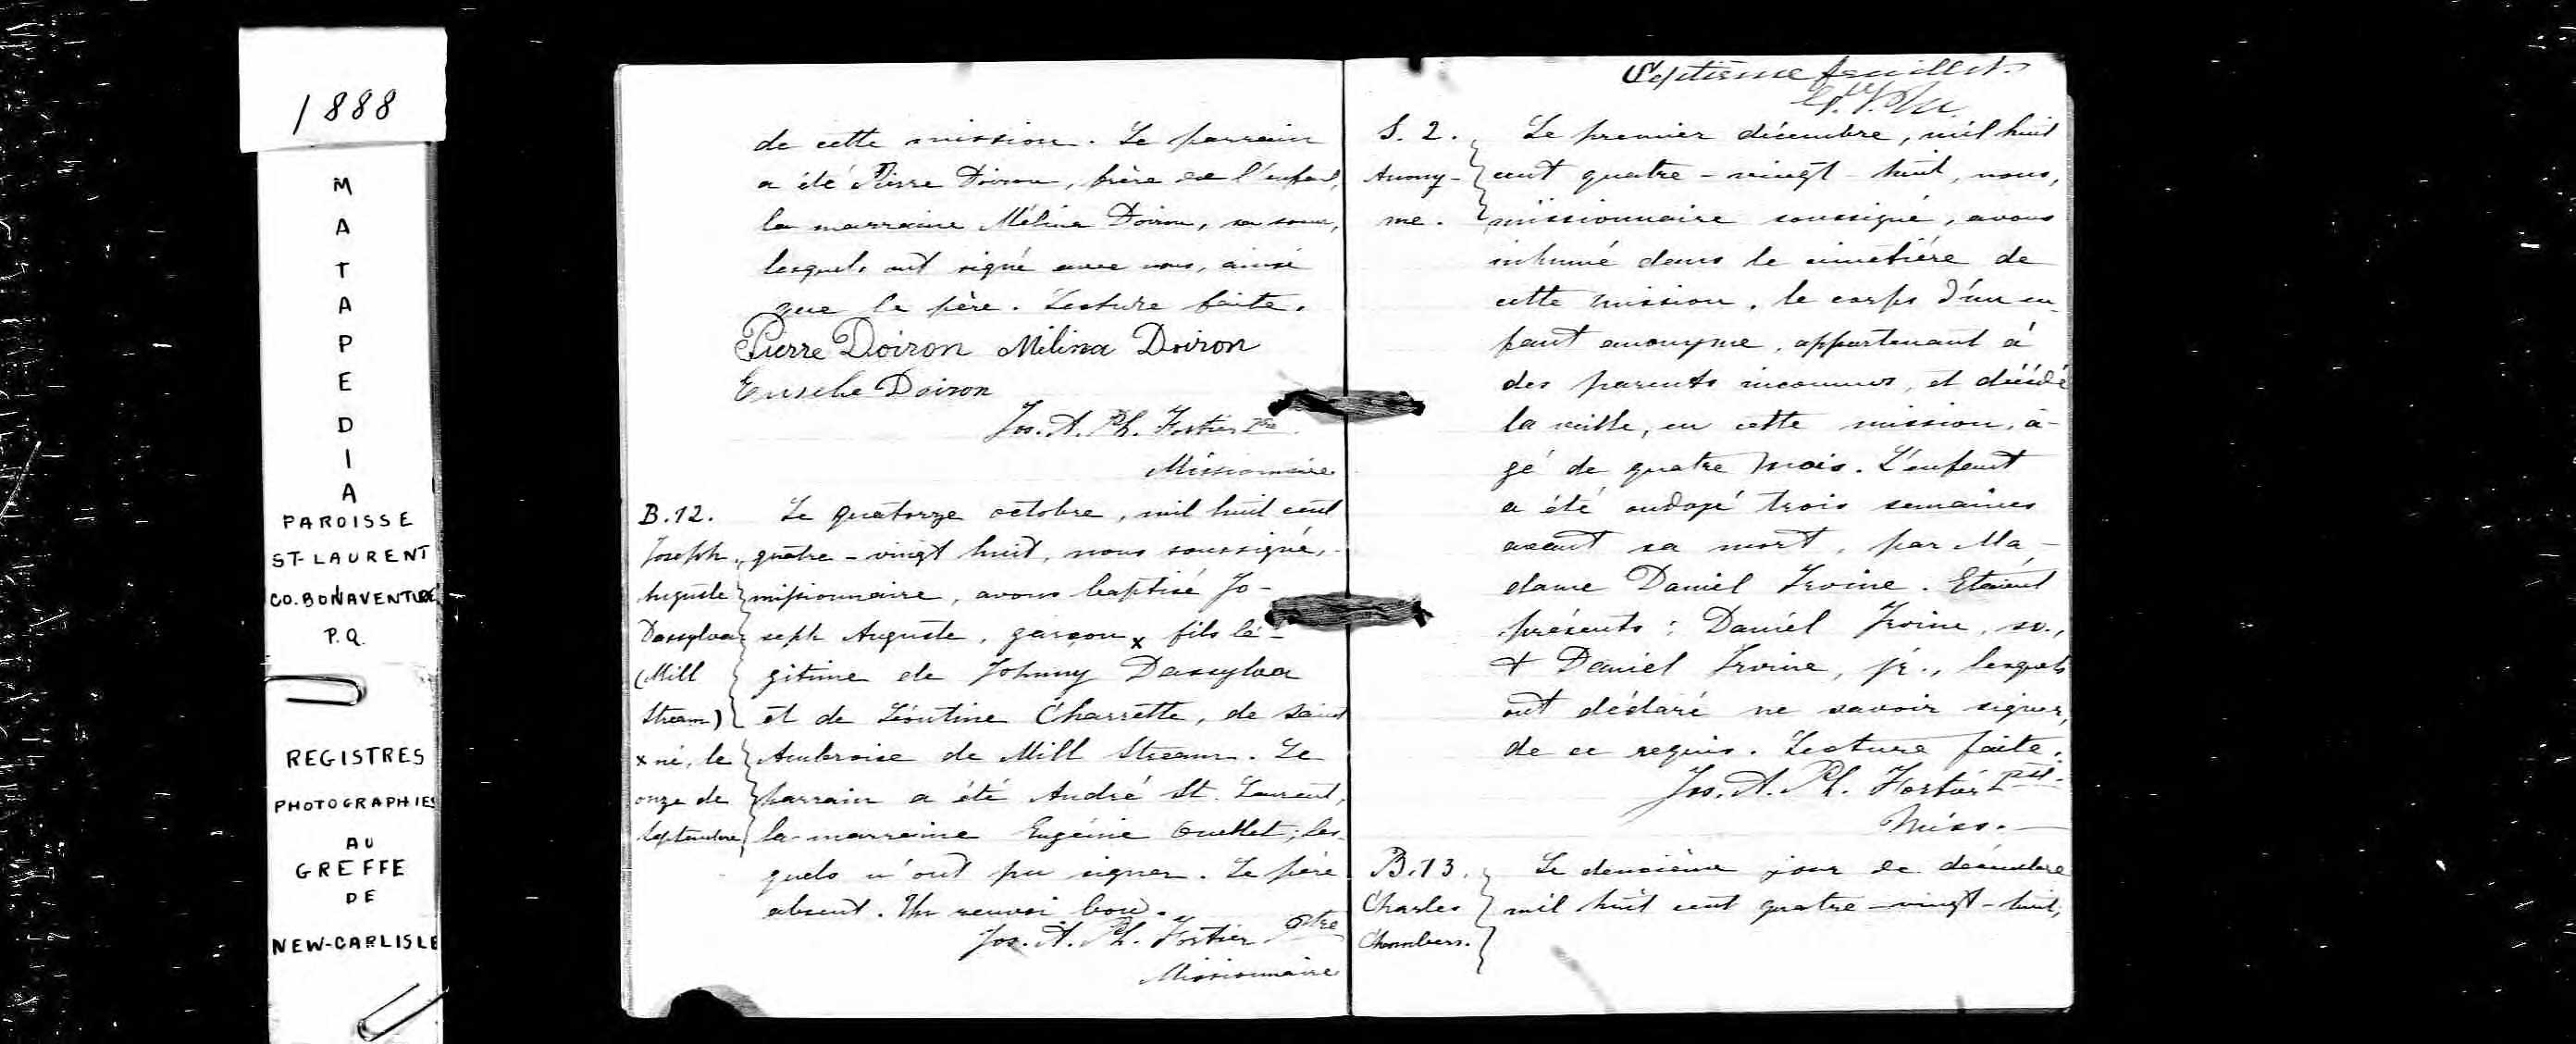 1888
MATAPEDIA
PAROISSE
ST-LAURENT
CO. BONAVENTURE
P.Q.
REGISTRES
PHOTOGRAPHIES
AU
GREFFE
DE
NEW-CARLISLE
de cette mission. Le parrain
a été Pierre Doiron, frère de l'enfant,
la marraine Mélina Doiron, sa soeur,
lesquels ont signé avec nous, ainsi
que le père. Lecture faite.
Pierre Doiron Mélina Doiron
Eusebe Doiron
Jos. A. Ph. Fortier Ptre
Missionnaire
B.12. Le quatorze octobre, mil huit cent
Joseph quatre-vingt huit, nous soussigné,
Auguste missionnaire, avons baptisé Jo-
Dassylva seph Auguste, garçon x fils lé-
(Mill gitime de Johnny Dassylva
Stream) et de Léontine Charrette, de Saint
x né, le Ambroise de Mill Stream. Le
onze de parrain a été André St. Laurent,
septembre la marraine Eugénie Ouellet; les-
quels n'ont pu signer. Le père
absent. Un renvoi bon.
Jos. A. Ph. Fortier Ptre
Missionnaire
Septième feuillet.
S. 2. Le premier décembre, mil huit
Anony- cent quatre-vingt-huit, nous,
me. missionnaire soussigné, avons
inhumé dans le cimetière de
cette mission, le corps d'un en-
fant anonyme, appartenant à
des parents inconnus, et décédé
la veille, en cette mission, â-
gé de quatre mois. L'enfant
a été ondoyé trois semaines
avant sa mort, par Ma-
dame Daniel Irvine. Etaient
présents: Daniel Irvine, sr.,
& Daniel Irvine, jr., lesquels
ont déclaré ne savoir signer,
de ce requis. Lecture faite.
Jos. A. Ph. Fortier Ptre
Miss.
B.13. Le deuxième jour de décembre
Charles mil huit cent quatre-vingt-huit,
Chambers.